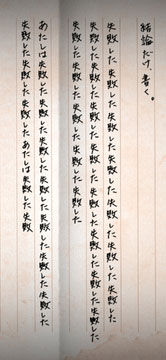 結論だけ、書く。
失敗した失敗した失敗した失敗した失敗した失敗した失敗した失敗した失敗した失敗した
失敗した失敗した失敗した失敗した失敗した失敗した失敗した失敗した失敗した失敗した
失敗した失敗した失敗した失敗した失敗した失敗した
あたしは失敗した失敗した失敗した失敗した失敗した失敗した失敗した失敗した失敗した
失敗した失敗した失敗した失敗したあたしは失敗した失敗